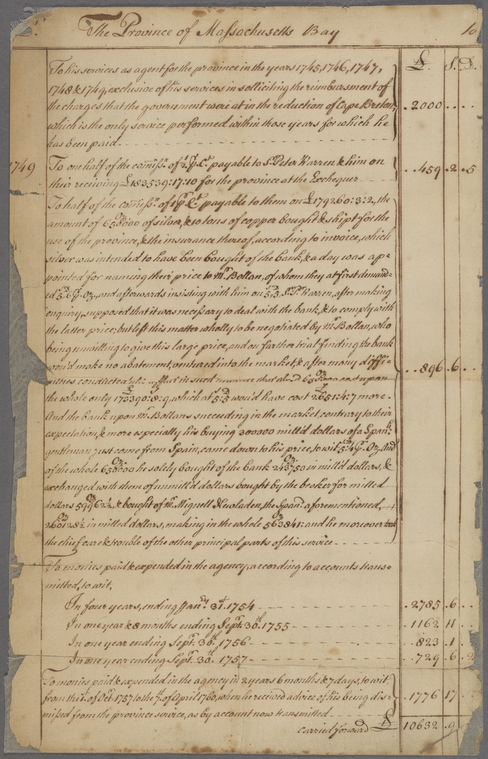 The Province of Massachusetts Bay to
£. S. D.
To his services as agent for the province in the years 1745, 1746, 1747,
1748 & 1749, exclusive of his services in solliciting the reimbursment of
the charges that the government were at in the reduction of Cape Breton, 2000
which is the only service performed within those years for which he
has been paid
1749 To one half of the comiss.ⁿ of ½ ⅌ C.ᵗ payable to S.ʳ Peter Warren & him on 459 . 2 . 5
their receiving £183539:17:10 for the province at the Exchequer
To half of the comiss.ⁿ of 1 ⅌ C.ᵗ payable to them on £179260:3:2, the
amount of of silver, & 10 tons of copper bought & shipt for the
use of the province, & the insurance thereof, according to invoice, which
silver was intended to have been bought of the bank, & a day was ap-
pointed for naming their price to M.ʳ Bollan, of whom they at first demand-
ed and afterwards insisting with him on S.ʳ P. Warren, after making
enquiry, supposed that it was necessary to deal with the bank, & to comply with
the latter price, but left this matter wholly to be negotiated by M.ʳ Bollan, who
being unwilling to give this large price, and on further trial finding the bank
wou'd make no abatement, ventured into the market, & after many diffi- 896 . 6
culties conducted this affair in such manner that the cost upon
the whole only which at wou'd have cost more.
And the bank upon M.ʳ Bollans succeeding in the market contrary to their
expectation, & more especially his buying 300000 mill'd dollars of a Span.ʰ
gentleman just come from Spain, came down to his price, to wit And
of the whole he solely bought of the bank in mill'd dollars, &
exchanged with them of unmill'd dollars bought by the broker for milled
dollars & bought of Miguell the Span.ᵈ aforementioned,
in milled dollars, making in the whole and he moreover took
the chief care & trouble of the other principal parts of this service
To monies paid & expended in the agency, according to accounts trans-
mitted, to wit,
In four years, ending Jan.ʸ 31.ˢᵗ 1754 2785 . 6
In one year & 8 months ending Sept.ʳ 30.ᵗʰ 1755 1162 11
In one year ending Sept.ʳ 30.ᵗʰ 1756 823 . 1
In one year ending Sept.ʳ 30.ᵗʰ 1757 729 . 6
To monies paid & expended in the agency in 2 years 6 months & 7 days, to wit
from the 1.ˢᵗ of Oct.ʳ 1757 to the 7.ᵗʰ of April 1760, when he received advice of his being dis- 1776 17
missed from the province service, as by account now transmitted
Carried forward £ 10632 . 9